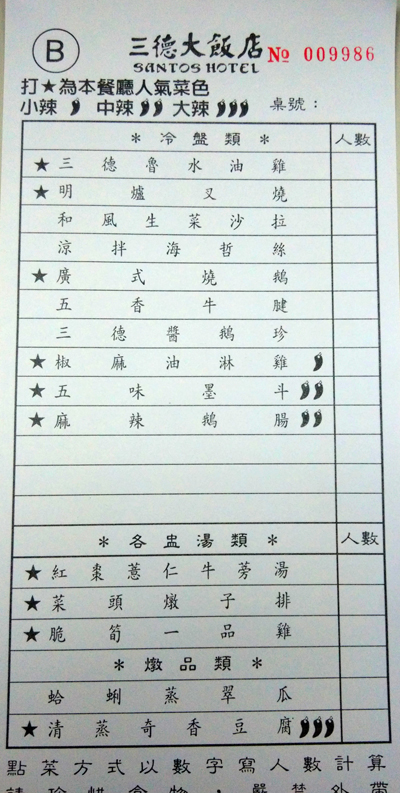 B
三德大飯店
SANTOS HOTEL
№ 009986
打★為本餐廳人氣菜色
小辣 中辣 大辣 桌號：
＊冷盤類＊ 人數
★三德魯水油雞
★明爐叉燒
和風生菜沙拉
涼拌海哲絲
★廣式燒鵝
五香牛腱
三德醬鵝珍
★椒麻油淋雞
★五味墨斗
★麻辣鵝腸
＊各盅湯類＊ 人數
★紅棗薏仁牛蒡湯
★菜頭燉子排
★脆筍一品雞
＊燉品類＊
蛤蜊蒸翠瓜
★清蒸奇香豆腐
點菜方式以數字寫人數計算
請珍惜食物，嚴禁外帶